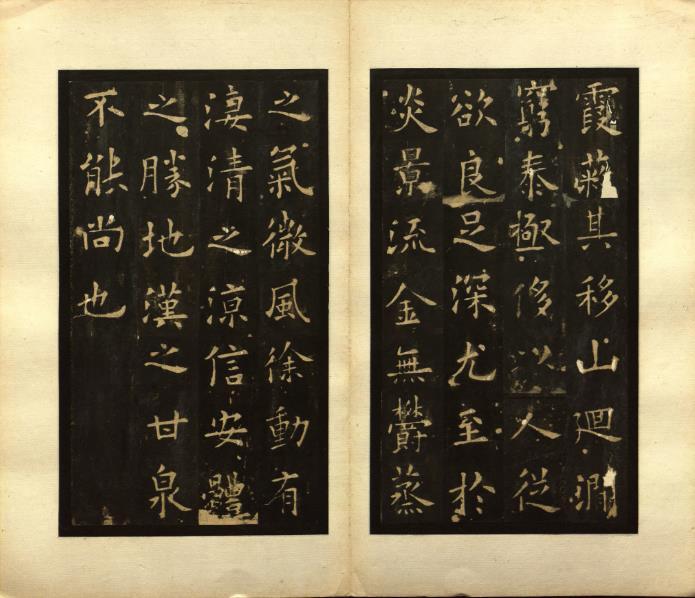 霞蔚其移山迴澗
窮泰極侈以人從
欲良足深尤至於
炎景流金無鬱蒸
之氣微風徐動有
淒清之涼信安體
之勝地漢之甘泉
不能尚也